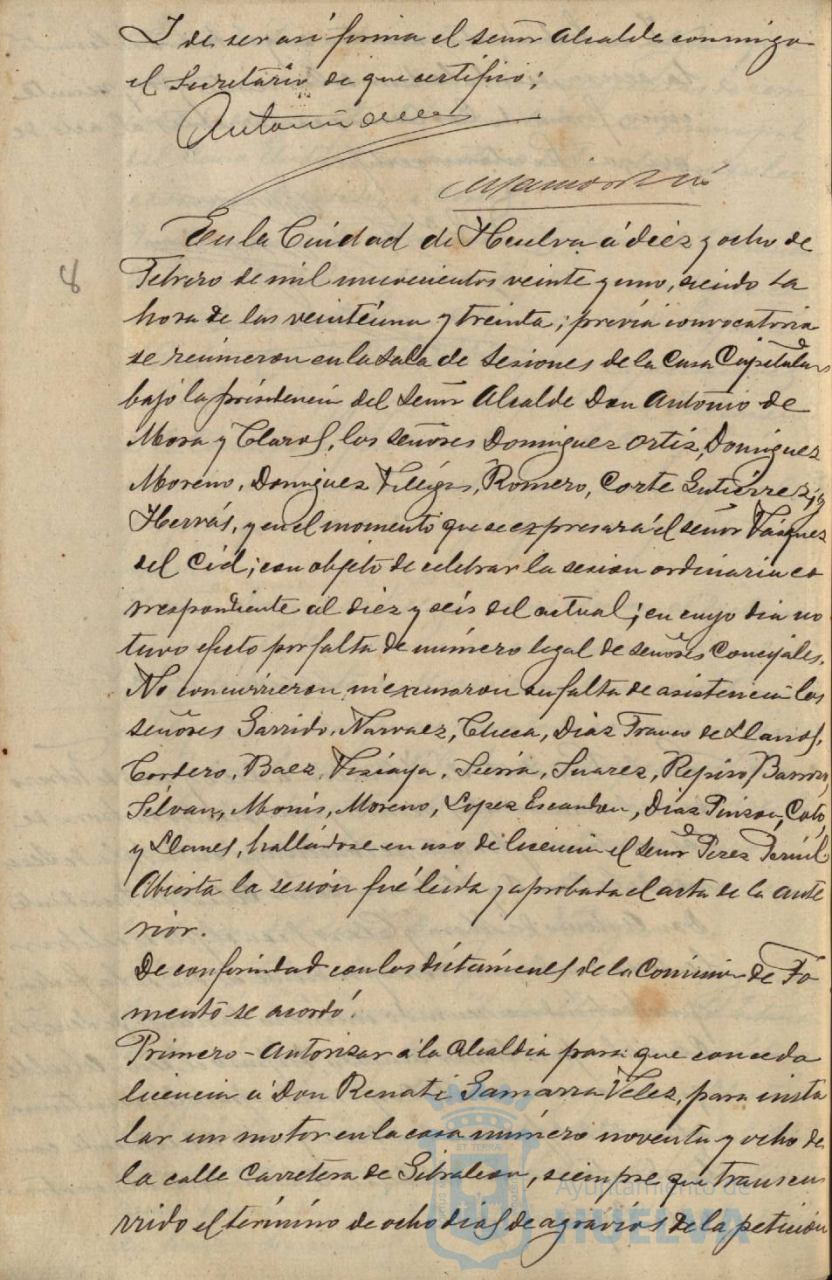 Y de ser así firma el señor Alcalde conmigo
el Secretario de que certifico;
En la Ciudad de Huelva á diez y ocho de
8
Febrero de mil nuevecientos veinte y uno, siendo la
hora de las veintiuna y treinta; previa convocatoria
se reunieron en la Sala de Sesiones de la Casa Capitular
bajo la presidencia del Señor Alcalde Don Antonio de
Mora y Claros, los señores Dominguez Ortiz, Dominguez
Moreno, Dominguez Villegas, Romero, Corte Gutiérrez, y
Hervás, y en el momento que se expresará el señor Vázquez
del Cid; con objeto de celebrar la sesion ordinaria co
rrespondiente al diez y seis del actual; en cuyo dia no
tuvo efecto por falta de número legal de señores Concejales.
No concurrieron ni excusaron su falta de asistencia los
señores Garrido, Narvaez, Checa, Diaz Franco de Llanos,
Cordero, Baez, Vizcaya, Sierra, Suarez, Repiso, Barros,
Silvan, Monis, Moreno, Lopez Escandon, Diaz Pinzon, Coto,
y Llanes, hallándose en uso de licencia el señor Perez
Abierta la sesión fué leida y aprobada el acta de la ante
rior.
De conformidad con los dictámenes de la Comision de Fo
mento se acordó:
Primero - Autorizar á la Alcaldia para que conceda
licencia á Don Renati Gamarra Velez, para insta
lar un motor en la casa número noventa y ocho de
la calle Carretera de Gibraleon, siempre que transcu
rrido el término de ocho dias de agravios de la petición
Ayuntamiento de
HUELVA